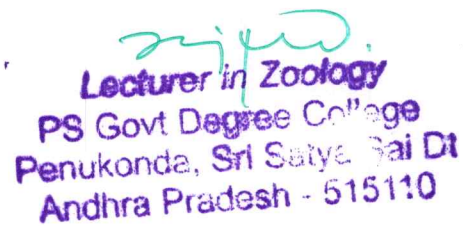 Lecturer in Zoology
PS Govt Degree College
Penukonda, Sri Satya Sai Dt
Andhra Pradesh - 515110